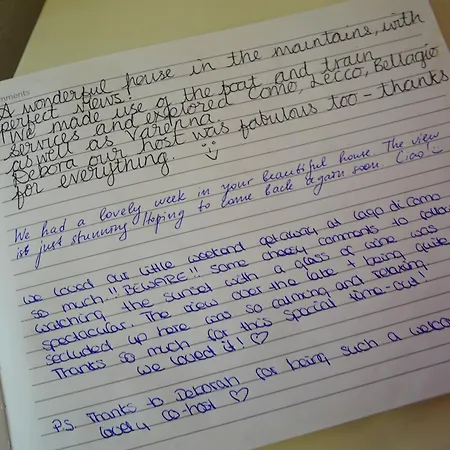 omments
A wonderful house in the mountains, with
perfect views!
We made use of the boat and train
services and explored Como, Lecco, Bellagio
aswell as Varenna.
Debora our host was fabulous too - thanks
for everything. :)
We had a lovely week in your beautiful house. The view
ist just stunning. Hoping to come back again soon. Ciao! :)
We loved our little weekend getaway at Lago di Como
so much. !!BEWARE!! some cheesy comments to follow
watching the sunset with a glass of wine was
spectacular. The view over the lake & being quite
secluded up here was so calming and relaxing.
Thanks so much for this special time-out!
we loved it! ♡
P.S. Thanks to Deborah for being such a
lovely co-host ♡